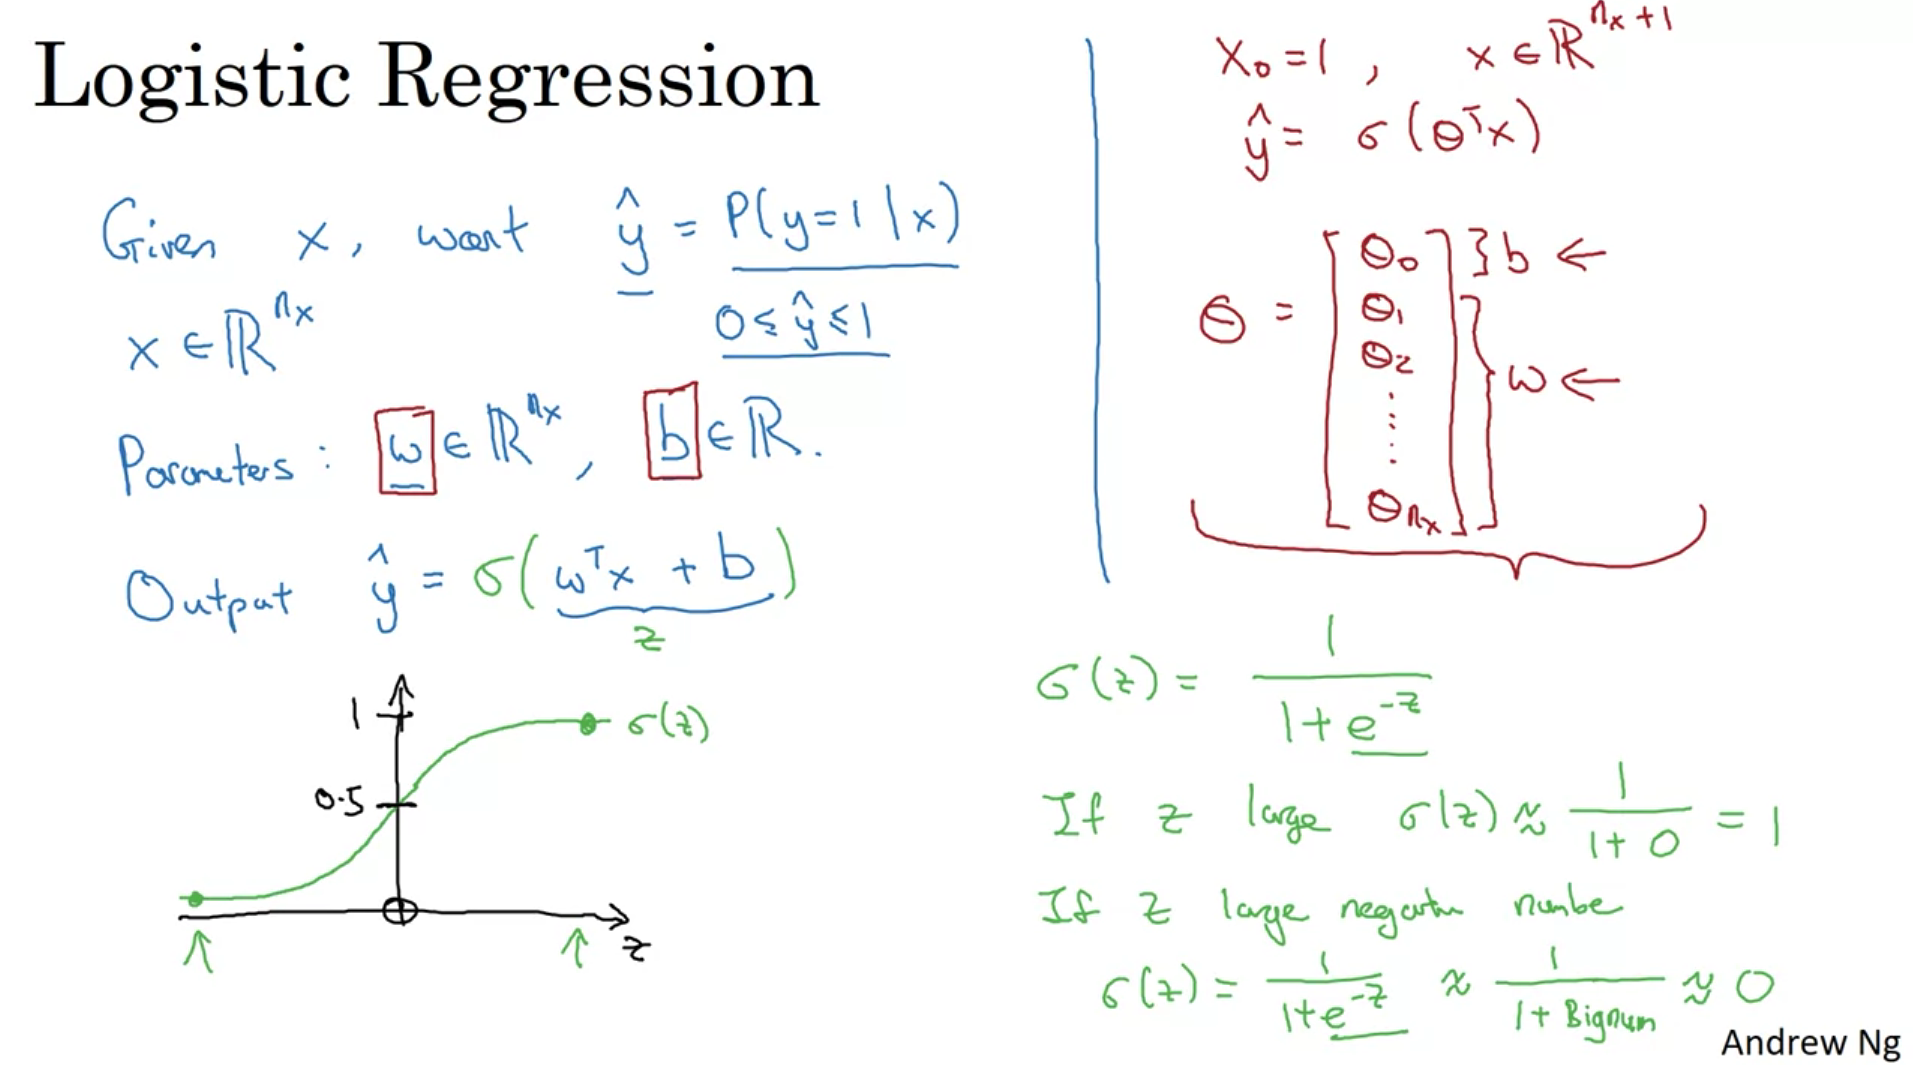 Logistic Regression
Given x, want ŷ = P(y=1 | x)
0 ≤ ŷ ≤ 1
x ∈ ℝ^nx
Parameters: w ∈ ℝ^nx, b ∈ ℝ.
Output ŷ = σ(wᵀx + b)
z
1
σ(z)
0.5
z
x₀ = 1, x ∈ ℝ^nx+1
ŷ = σ(θᵀx)
θ = [θ₀ θ₁ θ₂ ⋮ θnx]
} b ←
} w ←
σ(z) = 1 / (1 + e^-z)
If z large σ(z) ≈ 1 / (1 + 0) = 1
If z large negative number
σ(z) = 1 / (1 + e^-z) ≈ 1 / (1 + Bignum) ≈ 0
Andrew Ng